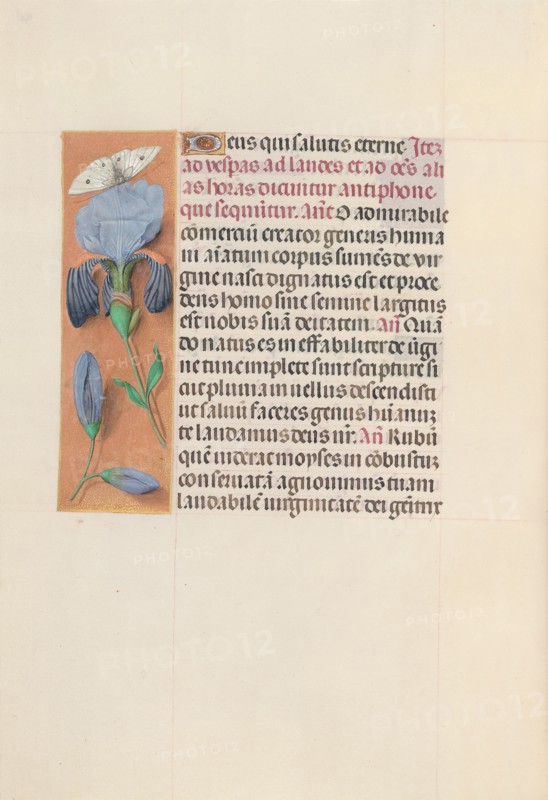 Deus qui salutis eterne. Itez
ad vespas ad laudes et ad oēs ali
as horas dicuntur antiphone
que sequūtur. Añt O admirabile
cōmerciū creator generis huma
ni aīatum corpus sumēs de vir
gine nasci dignatus est et proce
dens homo sine semine largitus
est nobis suā deitatem. Añ Quā
do natus es in effabiliter de v̄gi
ne tunc implete sunt scripture si
cut pluma in uellus descendisti
ut saluū faceres genus hūanū
te laudamus deus nr̄. Añ Rubū
quē uiderat moyses in cōbustuz
conseruatā agnouimus tuam
laudabilē uirginitatē dei genitrix
PHOTO12